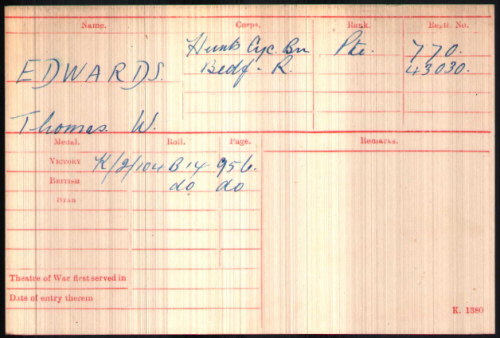 Name. Corps. Rank. Regtl. No.
EDWARDS. Hunts Cyc. Bn Pte. 770.
Bedf. R. 43030.
Thomas W.
Medal. Roll. Page. Remarks.
VICTORY K/2/104 B 14 956.
BRITISH do do
STAR
Theatre of War first served in
Date of entry therein
K. 1380